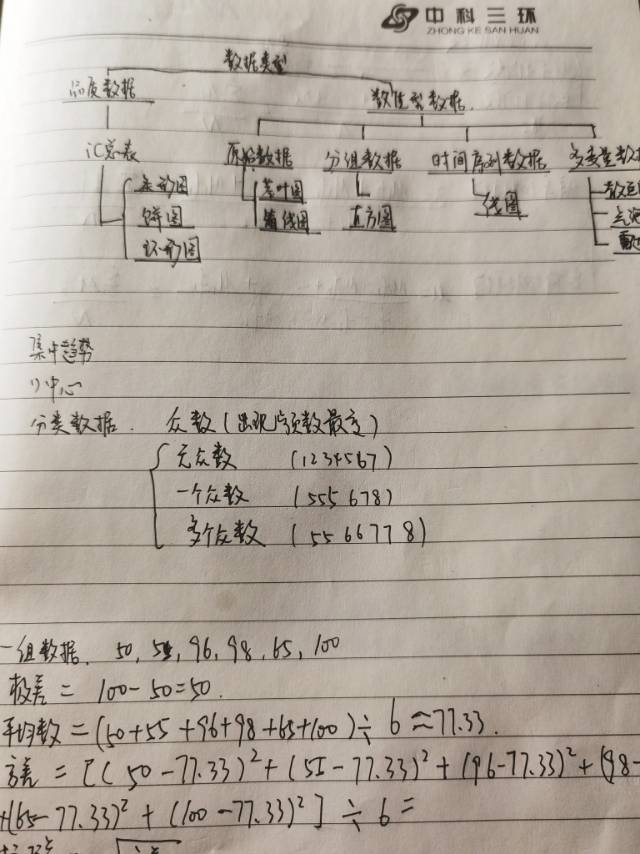 中科三环
ZHONG KE SAN HUAN
数据类型
品质数据 数值型数据
汇总表 原始数据 分组数据 时间序列数据 多变量数据
条形图 茎叶图 直方图 线图
饼图 箱线图
环形图
集中趋势
1)中心
分类数据. 众数(出现频数最多)
无众数 (1234567)
一个众数 (555 678)
多个众数 (55 66 77 8)
一组数据. 50, 55, 96, 98, 65, 100
极差 = 100-50=50.
平均数 = (50+55+96+98+65+100)÷6≈77.33.
方差 = [(50-77.33)²+(55-77.33)²+(96-77.33)²+(98-
+(65-77.33)²+(100-77.33)²]÷6=